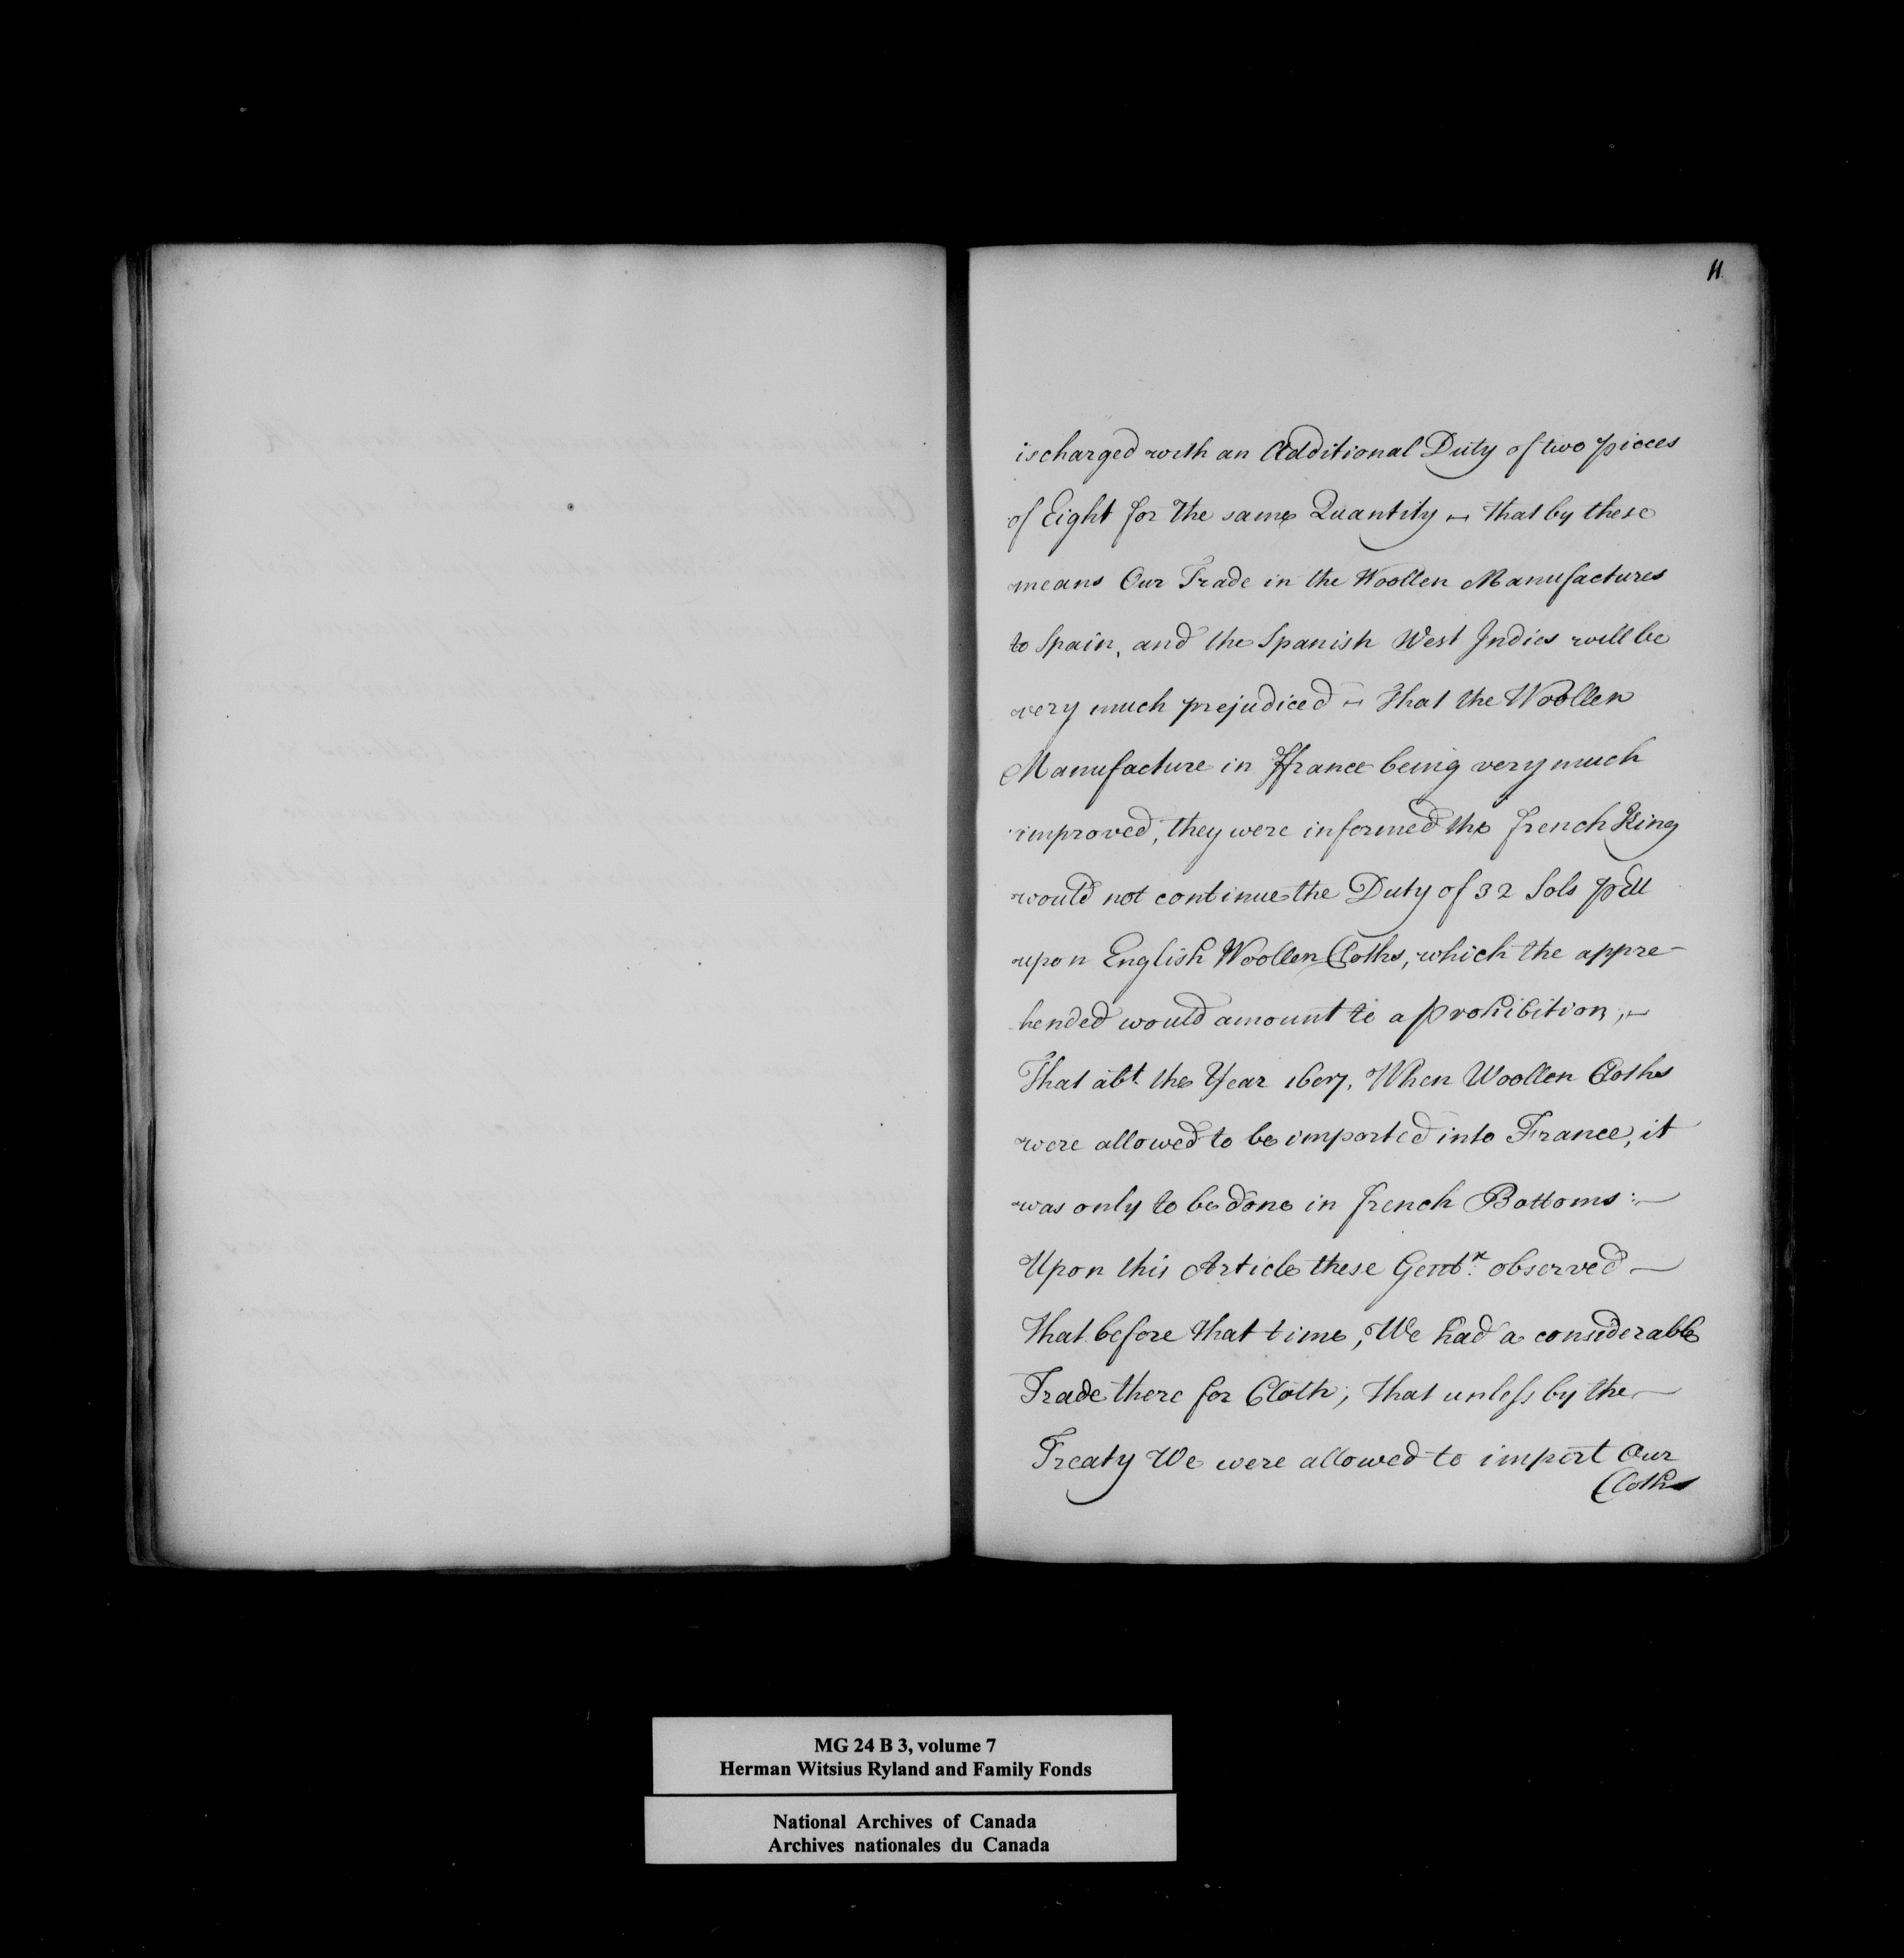 11
is charged with an Additional Duty of two pieces
of Eight for the same Quantity – that by these
means Our Trade in the Woollen Manufactures
to Spain, and the Spanish West Indies will be
very much prejudiced – That the Woollen
Manufacture in ffrance being very much
improved, they were informed the french King
would not continue the Duty of 32 Sols p Ell
upon English Woollen Cloths, which the appre-
hended would amount to a prohibition, –
That abt. the Year 1607. When Woollen Cloths
were allowed to be imported into France, it
was only to be done in french Bottoms: –
Upon this Article these Gent.n observed –
That before that time, We had a considerable
Trade there for Cloth; that unless by the –
Treaty We were allowed to import Our
Cloths
MG 24 B 3, volume 7
Herman Witsius Ryland and Family Fonds
National Archives of Canada
Archives nationales du Canada